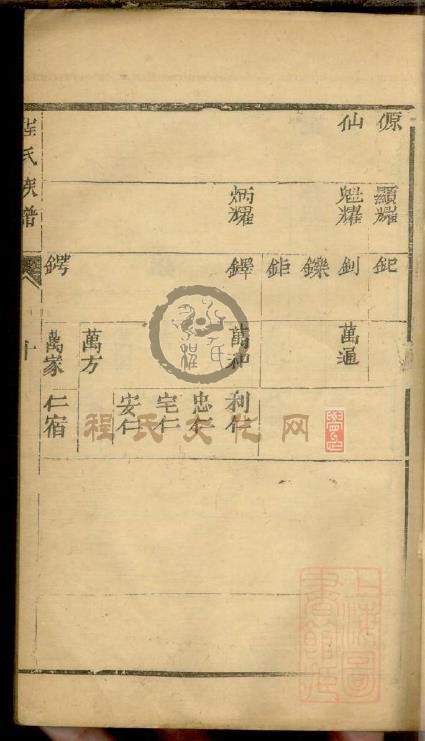 源 仙
顯耀 魁耀 炳耀
釲 釗 鑠 鉅 鐸 鍔
萬通 萬和 萬方 萬家
利仁 忠仁 宅仁 安仁 仁宿
氏族譜
十
程氏文化网
上海圖書館